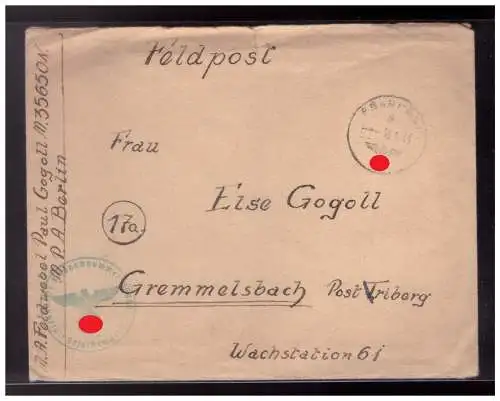 Feldpost
Frau
Else Gogoll
17a.
Gremmelsbach Post Triberg
Wachstation 61
A.A. Feldwebel Paul Gogoll M. 35650 N.
M.P.A. Berlin